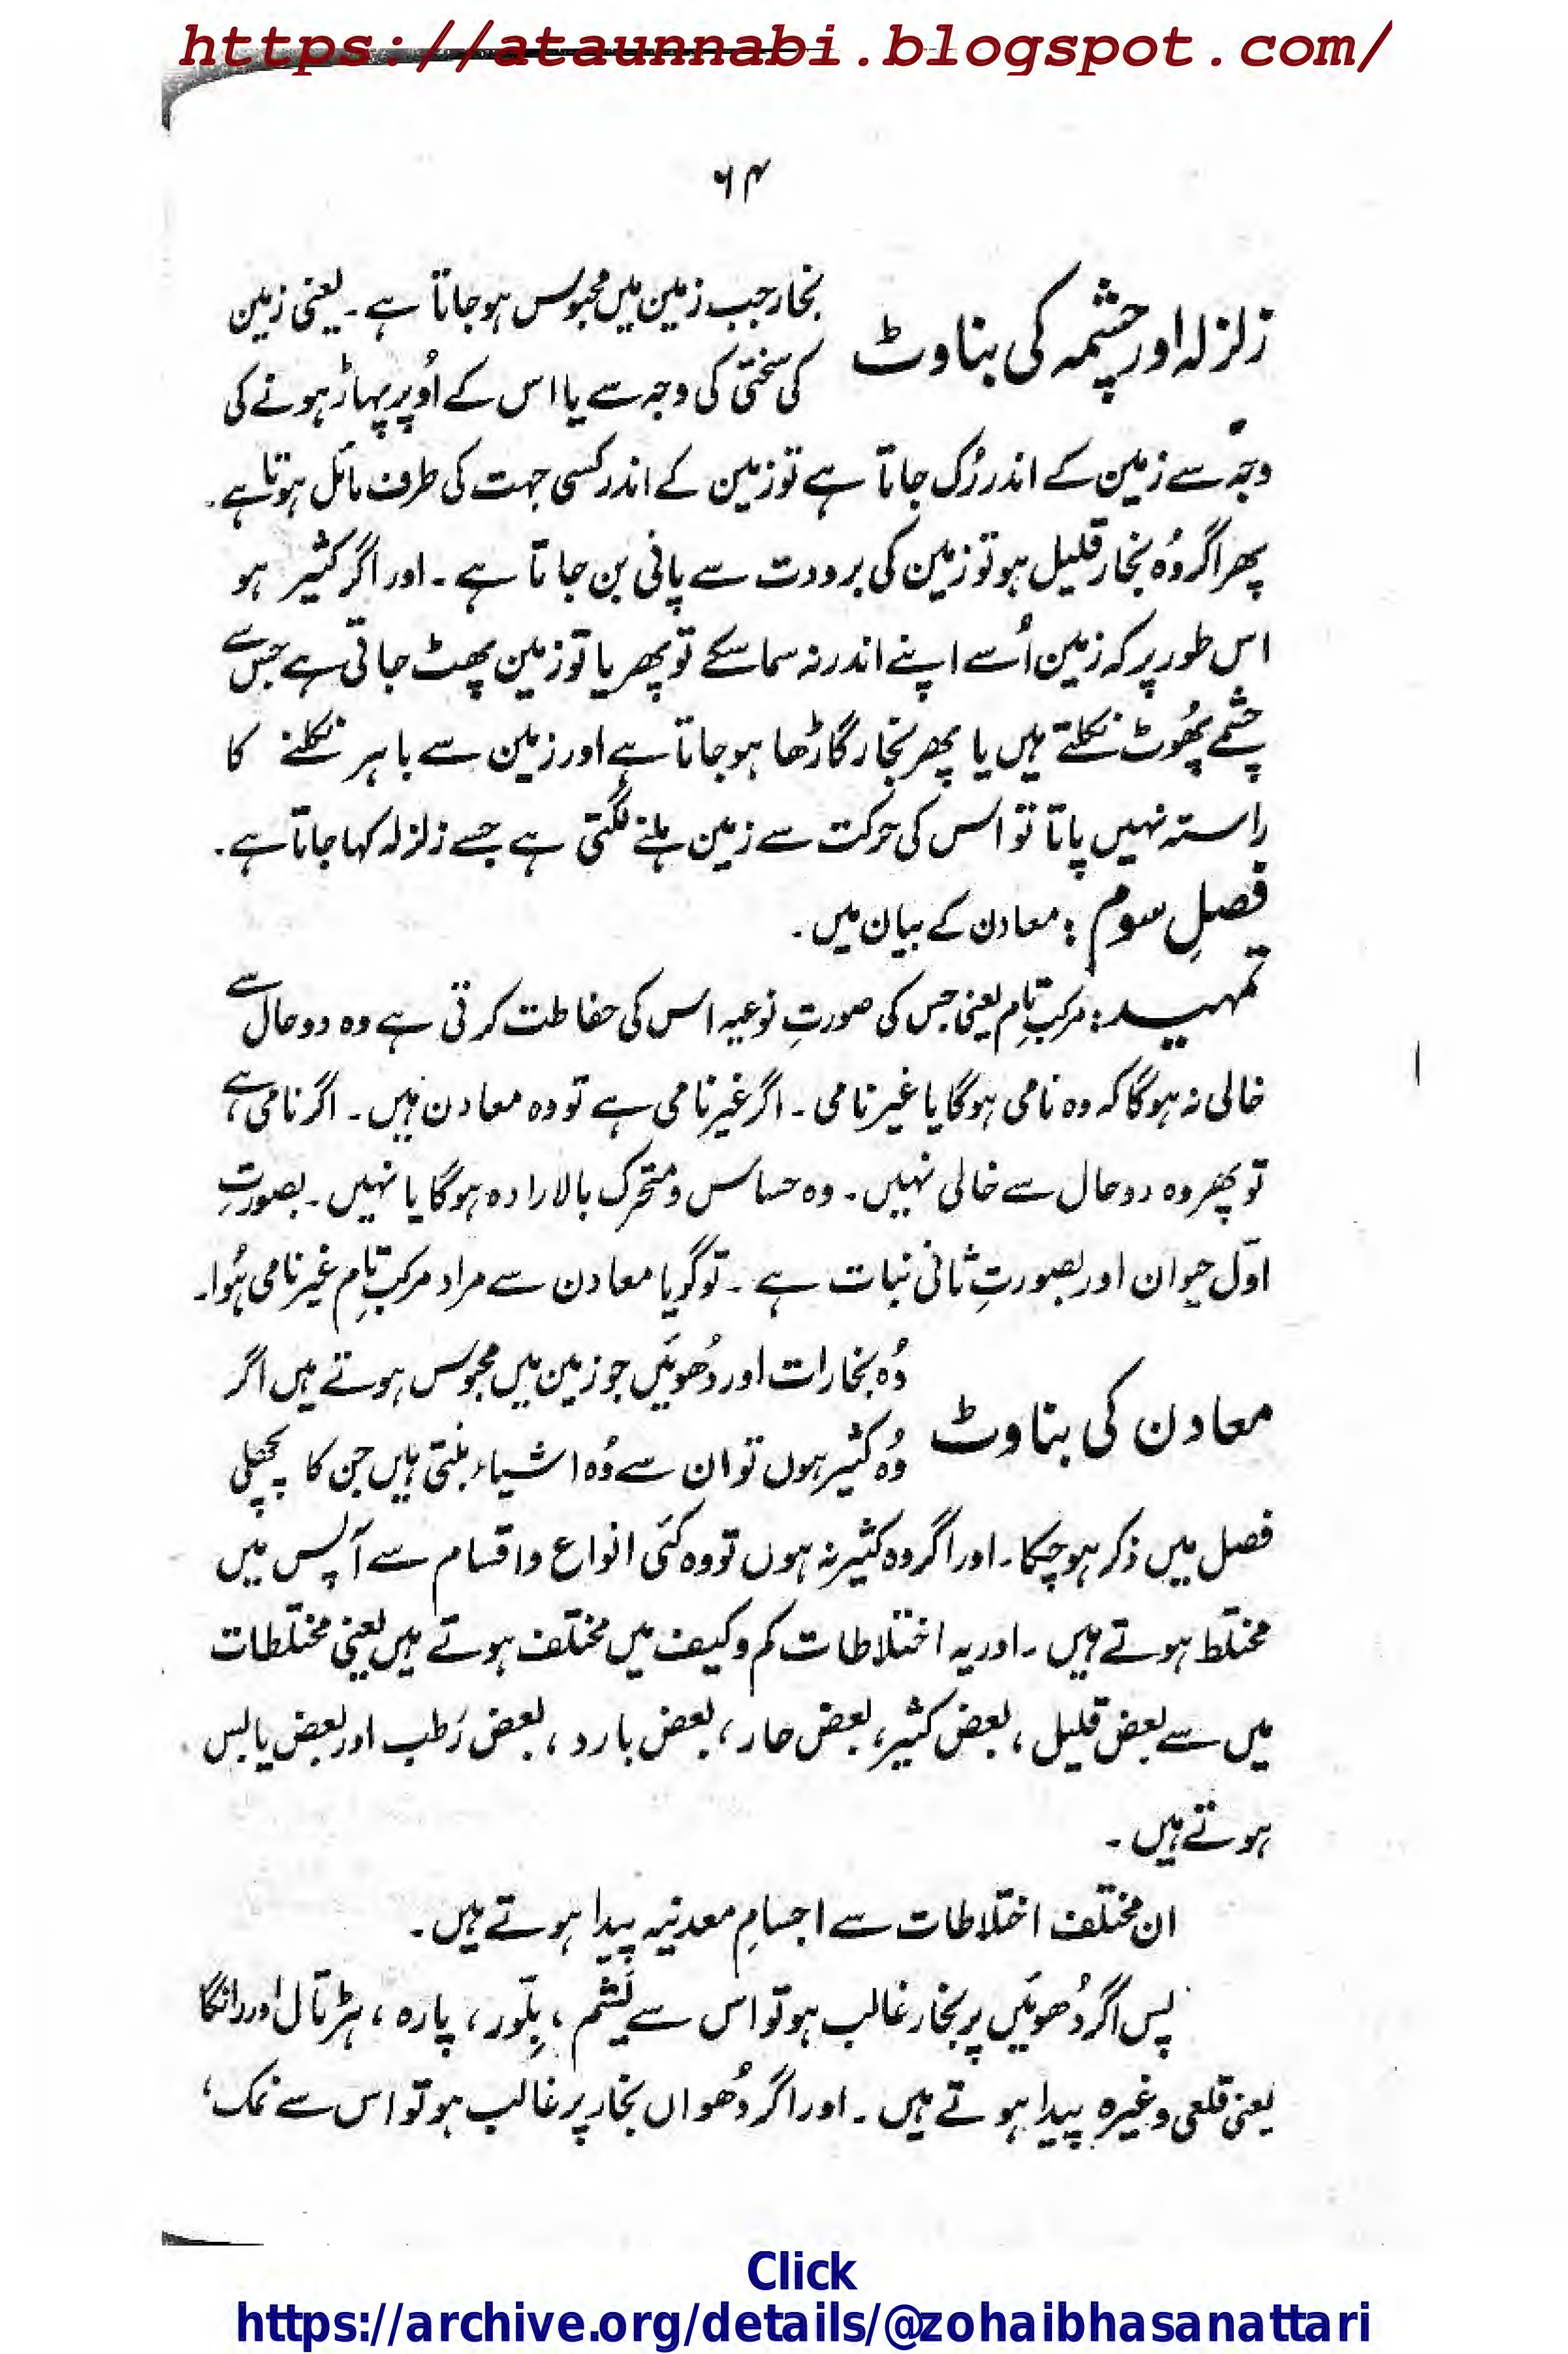 https://ataunnabi.blogspot.com/
۶۴
زلزلہ اور چشمہ کی بناوٹ
بخار جب زمین میں محبوس ہو جاتا ہے ۔ یعنی زمین
کی سختی کی وجہ سے یا اس کے اُوپر پہاڑ ہونے کی
وجہ سے زمین کے اندر رُک جاتا ہے تو زمین کے اندر کسی جہت کی طرف مائل ہوتا ہے ۔
پھر اگر وُہ بخار قلیل ہو تو زمین کی برودت سے پانی بن جاتا ہے ۔ اور اگر کثیر ہو
اس طور پر کہ زمین اُسے اپنے اندر نہ سما سکے تو پھر یا تو زمین پھٹ جاتی ہے جس سے
چشمے پھُوٹ نکلتے ہیں یا پھر بخار گاڑھا ہو جاتا ہے اور زمین سے باہر نکلنے کا
راستہ نہیں پاتا تو اس کی حرکت سے زمین ہلنے لگتی ہے جسے زلزلہ کہا جاتا ہے ۔
فصلِ سوم : معادن کے بیان میں ۔
تمہید : مرکبِ تام یعنی جس کی صورتِ نوعیہ اس کی حفاظت کرتی ہے وہ دو حال سے
خالی نہ ہوگا کہ وہ نامی ہوگا یا غیر نامی ۔ اگر غیر نامی ہے تو وہ معادن ہیں ۔ اگر نامی ہے
تو پھر وہ دو حال سے خالی نہیں ۔ وہ حساس و متحرک بالارادہ ہوگا یا نہیں ۔ بصورتِ
اوّل حیوان اور بصورتِ ثانی نبات ہے ۔ تو گویا معادن سے مراد مرکبِ تام غیر نامی ہُوا ۔
معادن کی بناوٹ
وُہ بخارات اور دُھوئیں جو زمین میں محبوس ہوتے ہیں اگر
وُہ کثیر ہوں تو ان سے وُہ اشیاء بنتی ہیں جن کا پچھلی
فصل میں ذکر ہو چکا ۔ اور اگر وہ کثیر نہ ہوں تو وہ کئی انواع و اقسام سے آپس میں
مختلط ہوتے ہیں ۔ اور یہ اختلاطات کم و کیف میں مختلف ہوتے ہیں یعنی مختلطات
میں سے بعض قلیل ، بعض کثیر ، بعض حار ، بعض بارد ، بعض رَطب اور بعض یابس
ہوتے ہیں ۔
ان مختلف اختلاطات سے اجسامِ معدنیہ پیدا ہوتے ہیں ۔
پس اگر دُھوئیں پر بخار غالب ہو تو اس سے یَشم ، بِلّور ، پارہ ، ہڑتال اور رانگا
یعنی قلعی وغیرہ پیدا ہوتے ہیں ۔ اور اگر دُھواں بخار پر غالب ہو تو اس سے نمک ،
Click
https://archive.org/details/@zohaibhasanattari